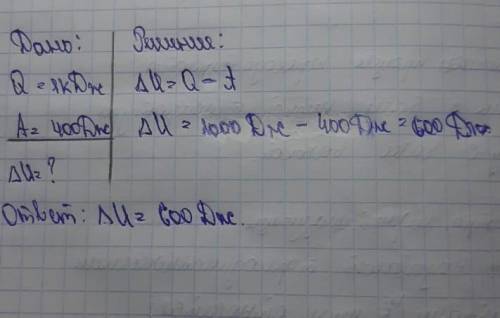 Дано: Решение:
Q = 1кДж ΔU = Q - A
A = 400Дж ΔU = 1000 Дж - 400Дж = 600 Дж
ΔU = ?
Ответ: ΔU = 600 Дж.